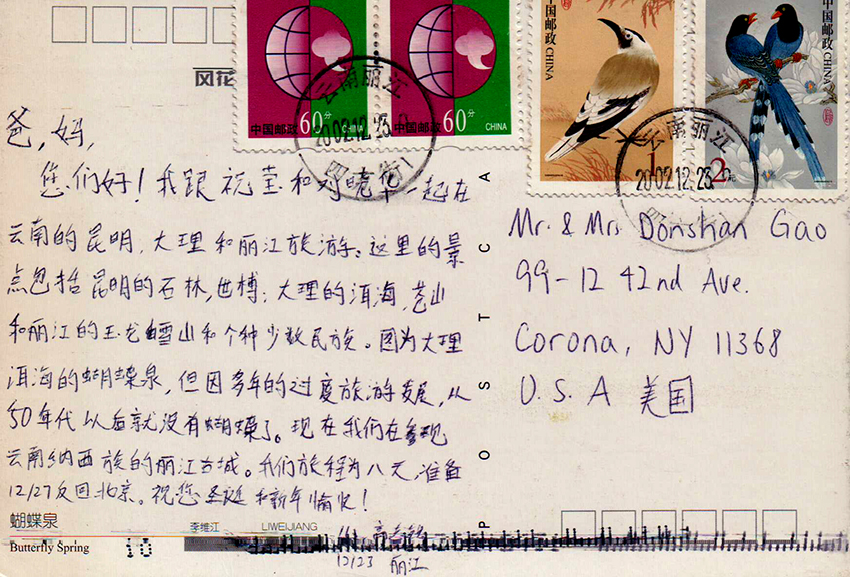 风花
中国邮政
60分
CHINA
中国邮政
60分
CHINA
中国邮政 CHINA
1元
中国邮政 CHINA
2元
云南丽江
2002.12.25.
四方街
云南丽江
2002.12.25
爸，妈，
您们好！我跟祝莹和刘晓华一起在
云南的昆明，大理和丽江旅游。这里的景
点包括昆明的石林，世博；大理的洱海，苍山
和丽江的玉龙雪山和个种少数民族。因为大理
洱海的蝴蝶泉，但因多年的过度旅游发展，从
50年代以后就没有蝴蝶了。现在我们在参观
云南纳西族的丽江古城。我们旅程为八天，准备
12/27反回北京。祝您圣诞和新年愉快！
12/23 丽江
POSTCA
Mr. & Mrs Donshan Gao
99-12 42nd Ave.
Corona, NY 11368
U.S.A 美国
蝴蝶泉
Butterfly Spring
10
李维江 LIWEIJIANG